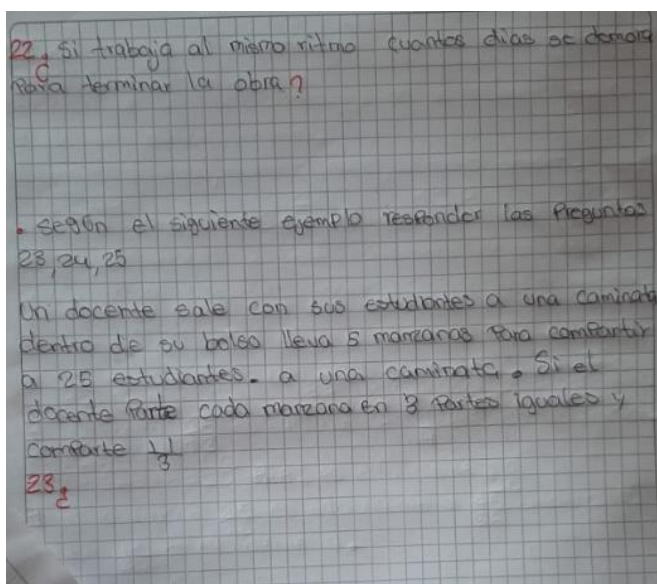 22. ¿ Si trabaja al mismo ritmo cuantos dias se demora
Para terminar la obra?
. según el siguiente ejemplo responder las Preguntas
23, 24, 25
Un docente sale con sus estudiantes a una caminata
dentro de su bolso lleva 5 manzanas Para compartir
a 25 estudiantes. a una caminata. Si el
docente Parte cada manzana en 3 Partes iguales y
comparte 11/3
23. ¿